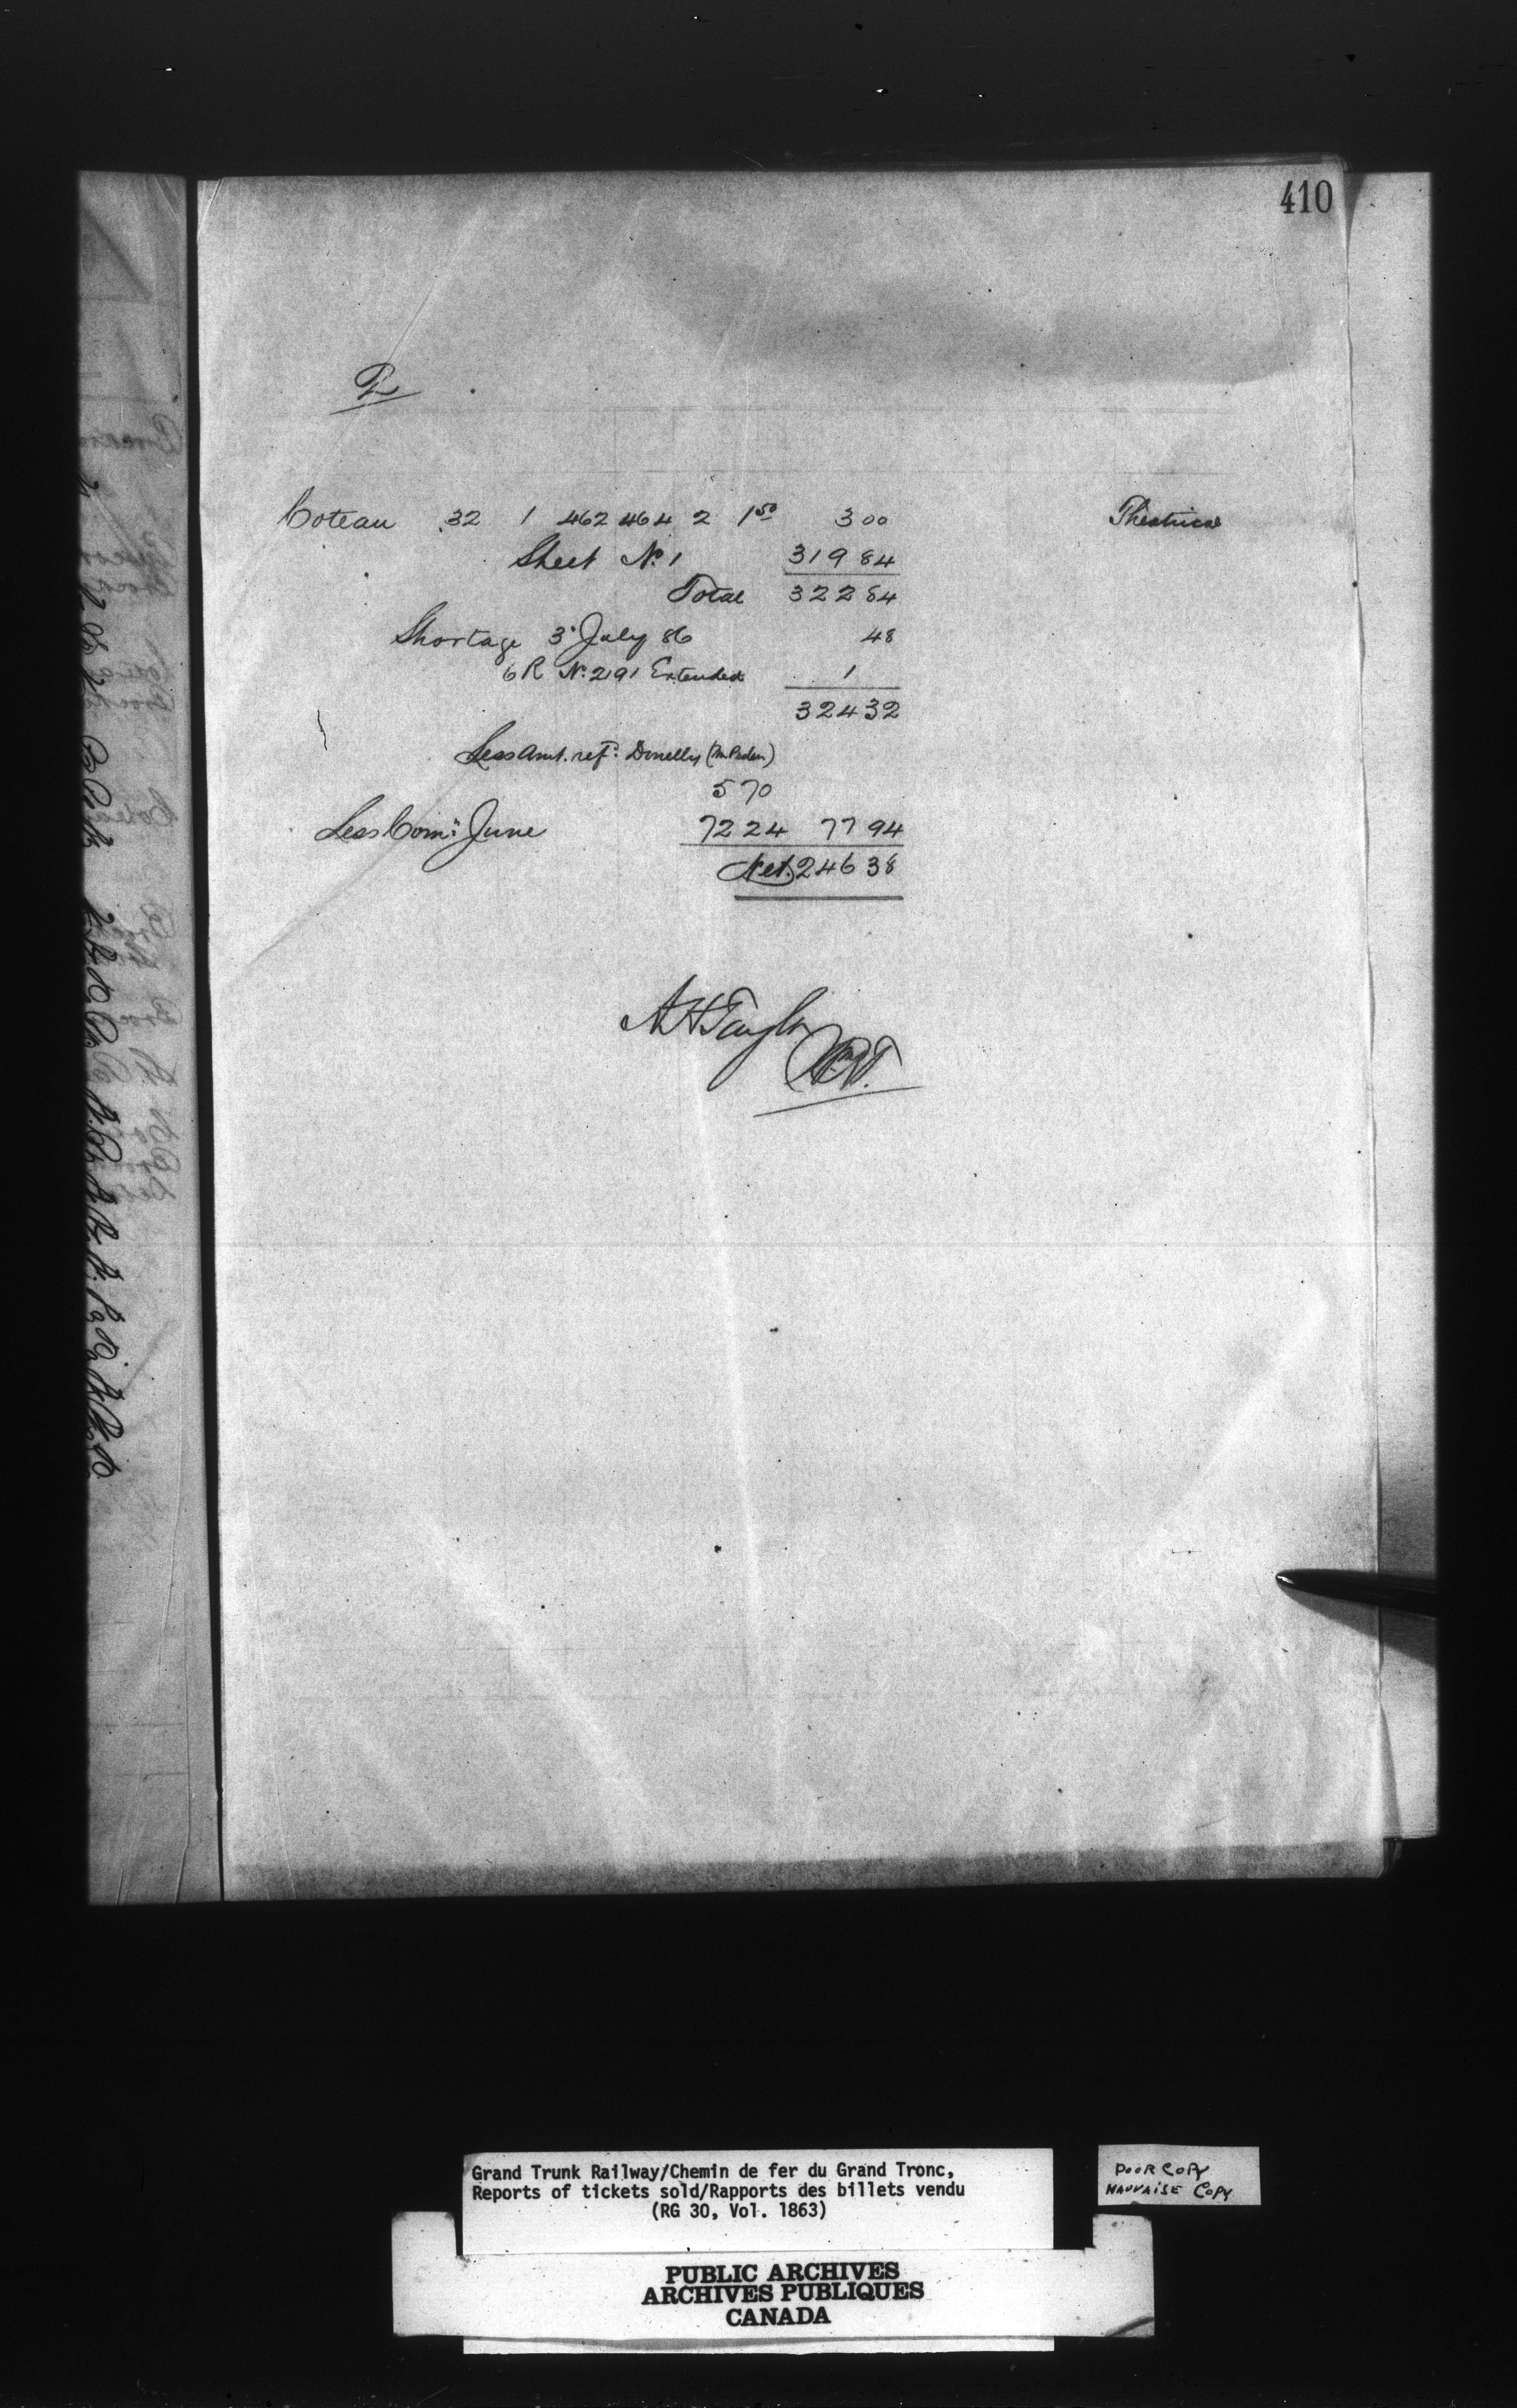 410
2
Coteau 32 1 462 464 2 1 50 3 00 Theatrical
Sheet No. 1 319 84
Total 322 84
Shortage 3" July 86 48
6 R No. 2191 Extended 1
324 32
Less Amt. ref: Donelly
5 70
Less Com: June 72 24 77 94
Net. 246 38
A H Taylor
Grand Trunk Railway/Chemin de fer du Grand Tronc,
Reports of tickets sold/Rapports des billets vendu
(RG 30, Vol. 1863)
POOR COPY
MAUVAISE COPY
PUBLIC ARCHIVES
ARCHIVES PUBLIQUES
CANADA